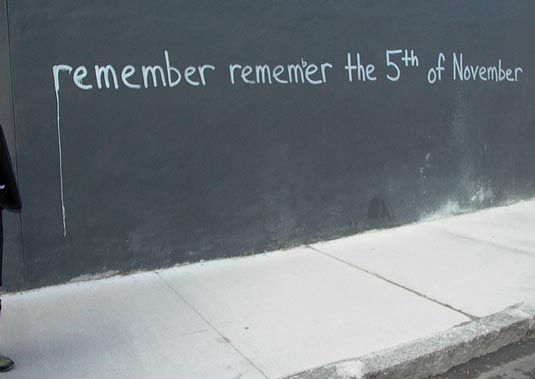 remember remember the 5th of November